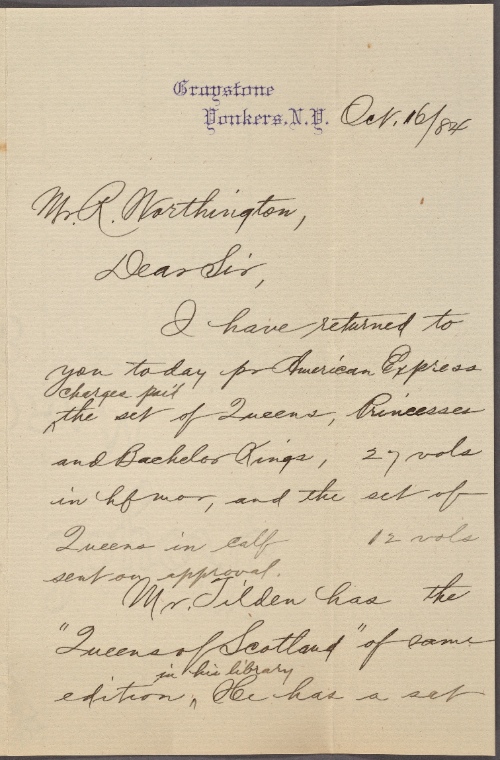 Graystone
Yonkers. N.Y. Oct. 16/84
Mr. R. Worthington,
Dear Sir,
I have returned to
you today pr American Express
charges paid
the set of Queens, Princesses
and Bachelor Kings, 27 vols
in hf mor, and the set of
Queens in calf 12 vols
sent on approval.
Mr. Tilden has the
"Queens of Scotland" of same
in his library
edition. He has a set